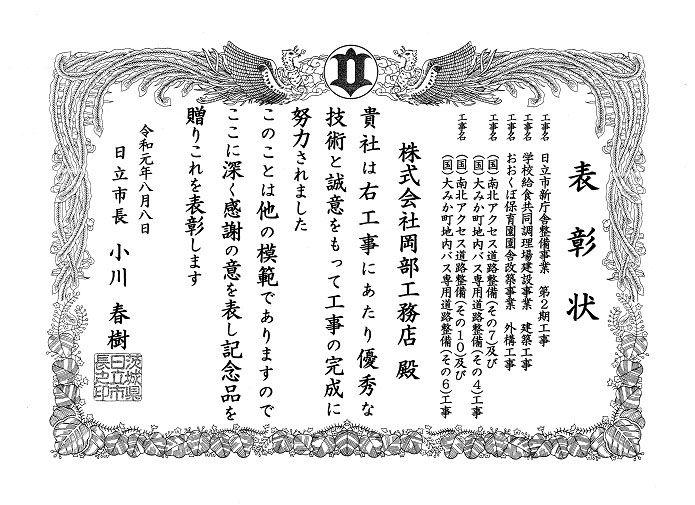 表彰状
工事名 日立市新庁舎整備事業 第2期工事
工事名 学校給食共同調理場建設事業 建築工事
工事名 おおくぼ保育園園舎改築事業 外構工事
工事名 (国)南北アクセス道路整備(その7)及び
(国)大みか町地内バス専用道路整備(その4)工事
工事名 (国)南北アクセス道路整備(その10)及び
(国)大みか町地内バス専用道路整備(その6)工事
株式会社岡部工務店 殿
貴社は右工事にあたり優秀な
技術と誠意をもって工事の完成に
努力されました
このことは他の模範でありますので
ここに深く感謝の意を表し記念品を
贈りこれを表彰します
令和元年八月八日
日立市長 小川 春樹
茨城県
日立市
長之印